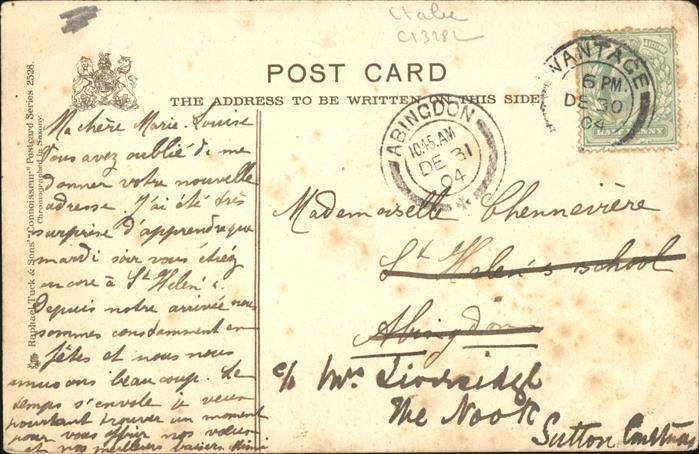 Italie
C1328L
POST CARD
THE ADDRESS TO BE WRITTEN ON THIS SIDE
Raphael Tuck & Sons' "Connoisseur" Postcard Series 2528.
Chromographed in Saxony.
WANTAGE
6 PM
DE 30
04
HALFPENNY
ABINGDON
10.45 AM
DE 31
04
Ma chère Marie-Louise
Vous avez oublié de me
donner votre nouvelle
adresse. J'ai été très
surprise d'apprendre que
mardi soir vous étiez
encore à St Helen's.
Depuis notre arrivée nous
sommes constamment en
fêtes et nous nous
amusons beaucoup. Le
temps s'envole je veux
pourtant trouver un moment
pour vous offrir nos vœux
et nos meilleurs baisers Mimi
Mademoiselle Chennevière
St Helen's school
Abingdon
c/o Mrs
The Nook
Sutton Courtenay